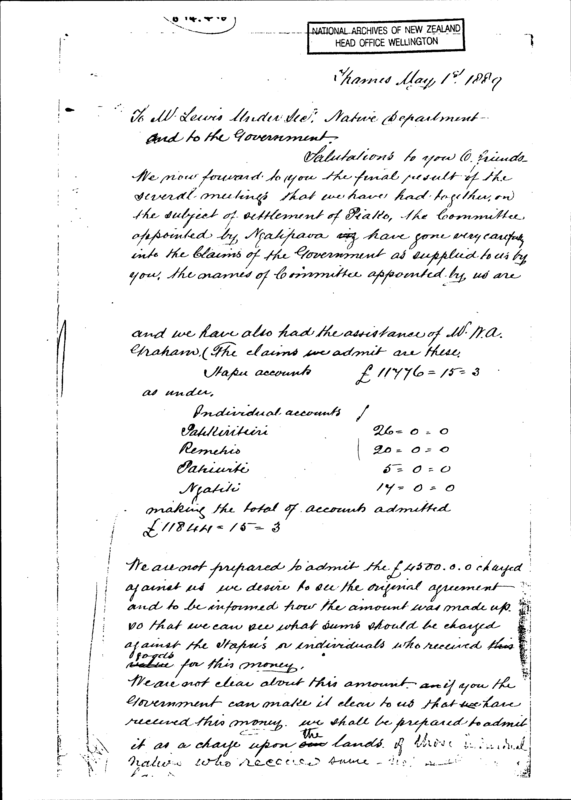 NATIONAL ARCHIVES OF NEW ZEALAND
HEAD OFFICE WELLINGTON
Thames May 1st 1887
To Mr. Lewis Under Sec. Native Department
and to the Government
Salutations to you O. friends
We now forward to you the final result of the
several meetings that we have had together, on
the subject of settlement of Piako, the Committee
appointed by Ngatipaoa have gone very carefully
into the Claims of the Government as supplied to us by
you, the names of Committee appointed by us are
and we have also had the assistance of Mr. W.A.
Graham. (The claims we admit are these,
Hapu accounts £11776=15=3
as under,
Individual accounts
26=0=0
Remehio 20=0=0
5=0=0
Ngatiti 17=0=0
making the total of accounts admitted
£11844=15=3
We are not prepared to admit the £4500.0.0 charged
against us we desire to see the original agreement
and to be informed how the amount was made up.
so that we can see what sums should be charged
against the Hapu's or individuals who received this
goods
for this money.
We are not clear about this amount. an if you the
Government can make it clear to us that we have
received this money. we shall be prepared to admit
the
it as a charge upon our lands. of those
natives who received same